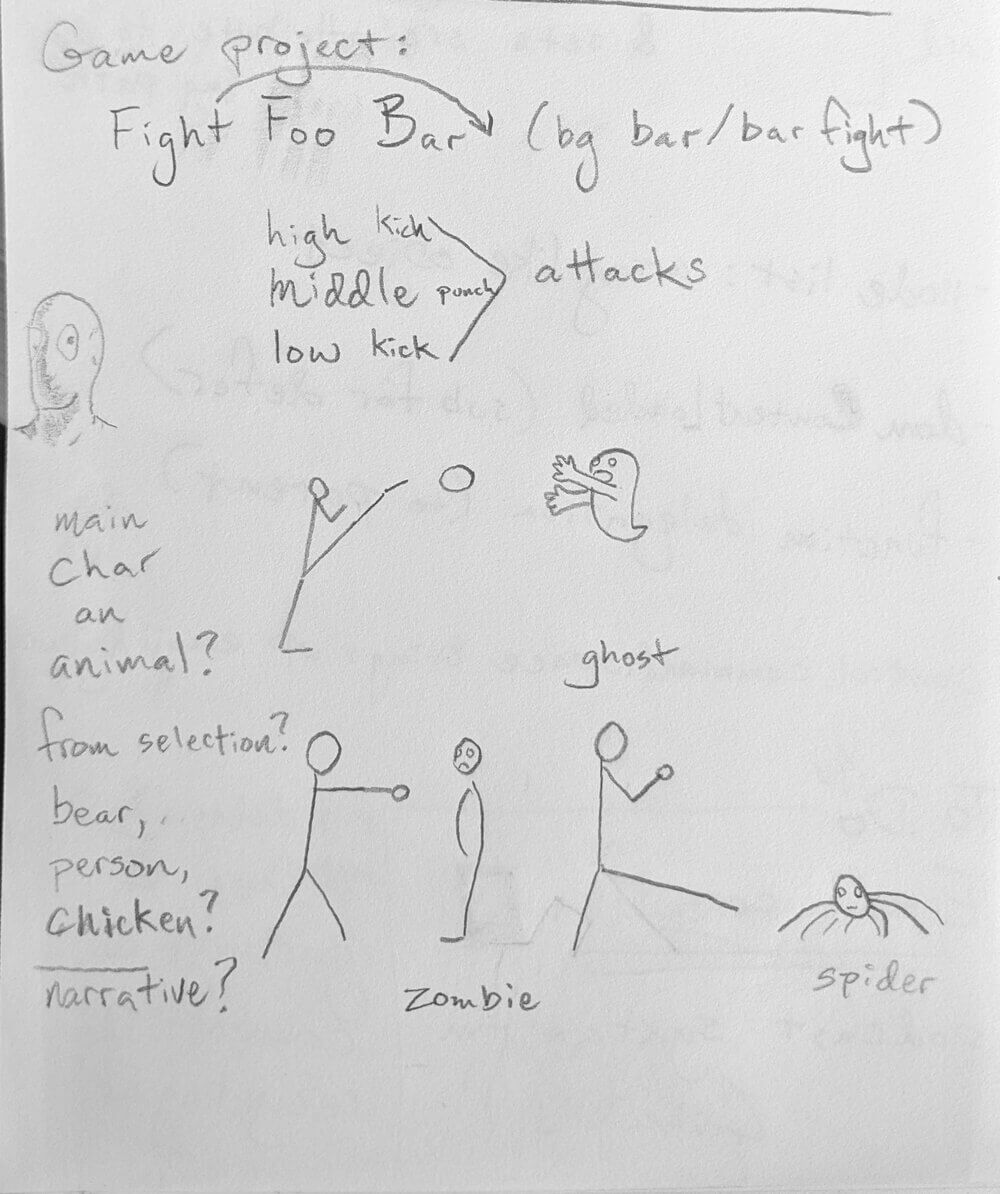 Game project:
Fight Foo Bar (bg bar/bar fight)
high kick
middle punch
low kick
attacks
main
char
an
animal?
ghost
from selection?
bear,
person,
chicken?
narrative?
zombie
spider